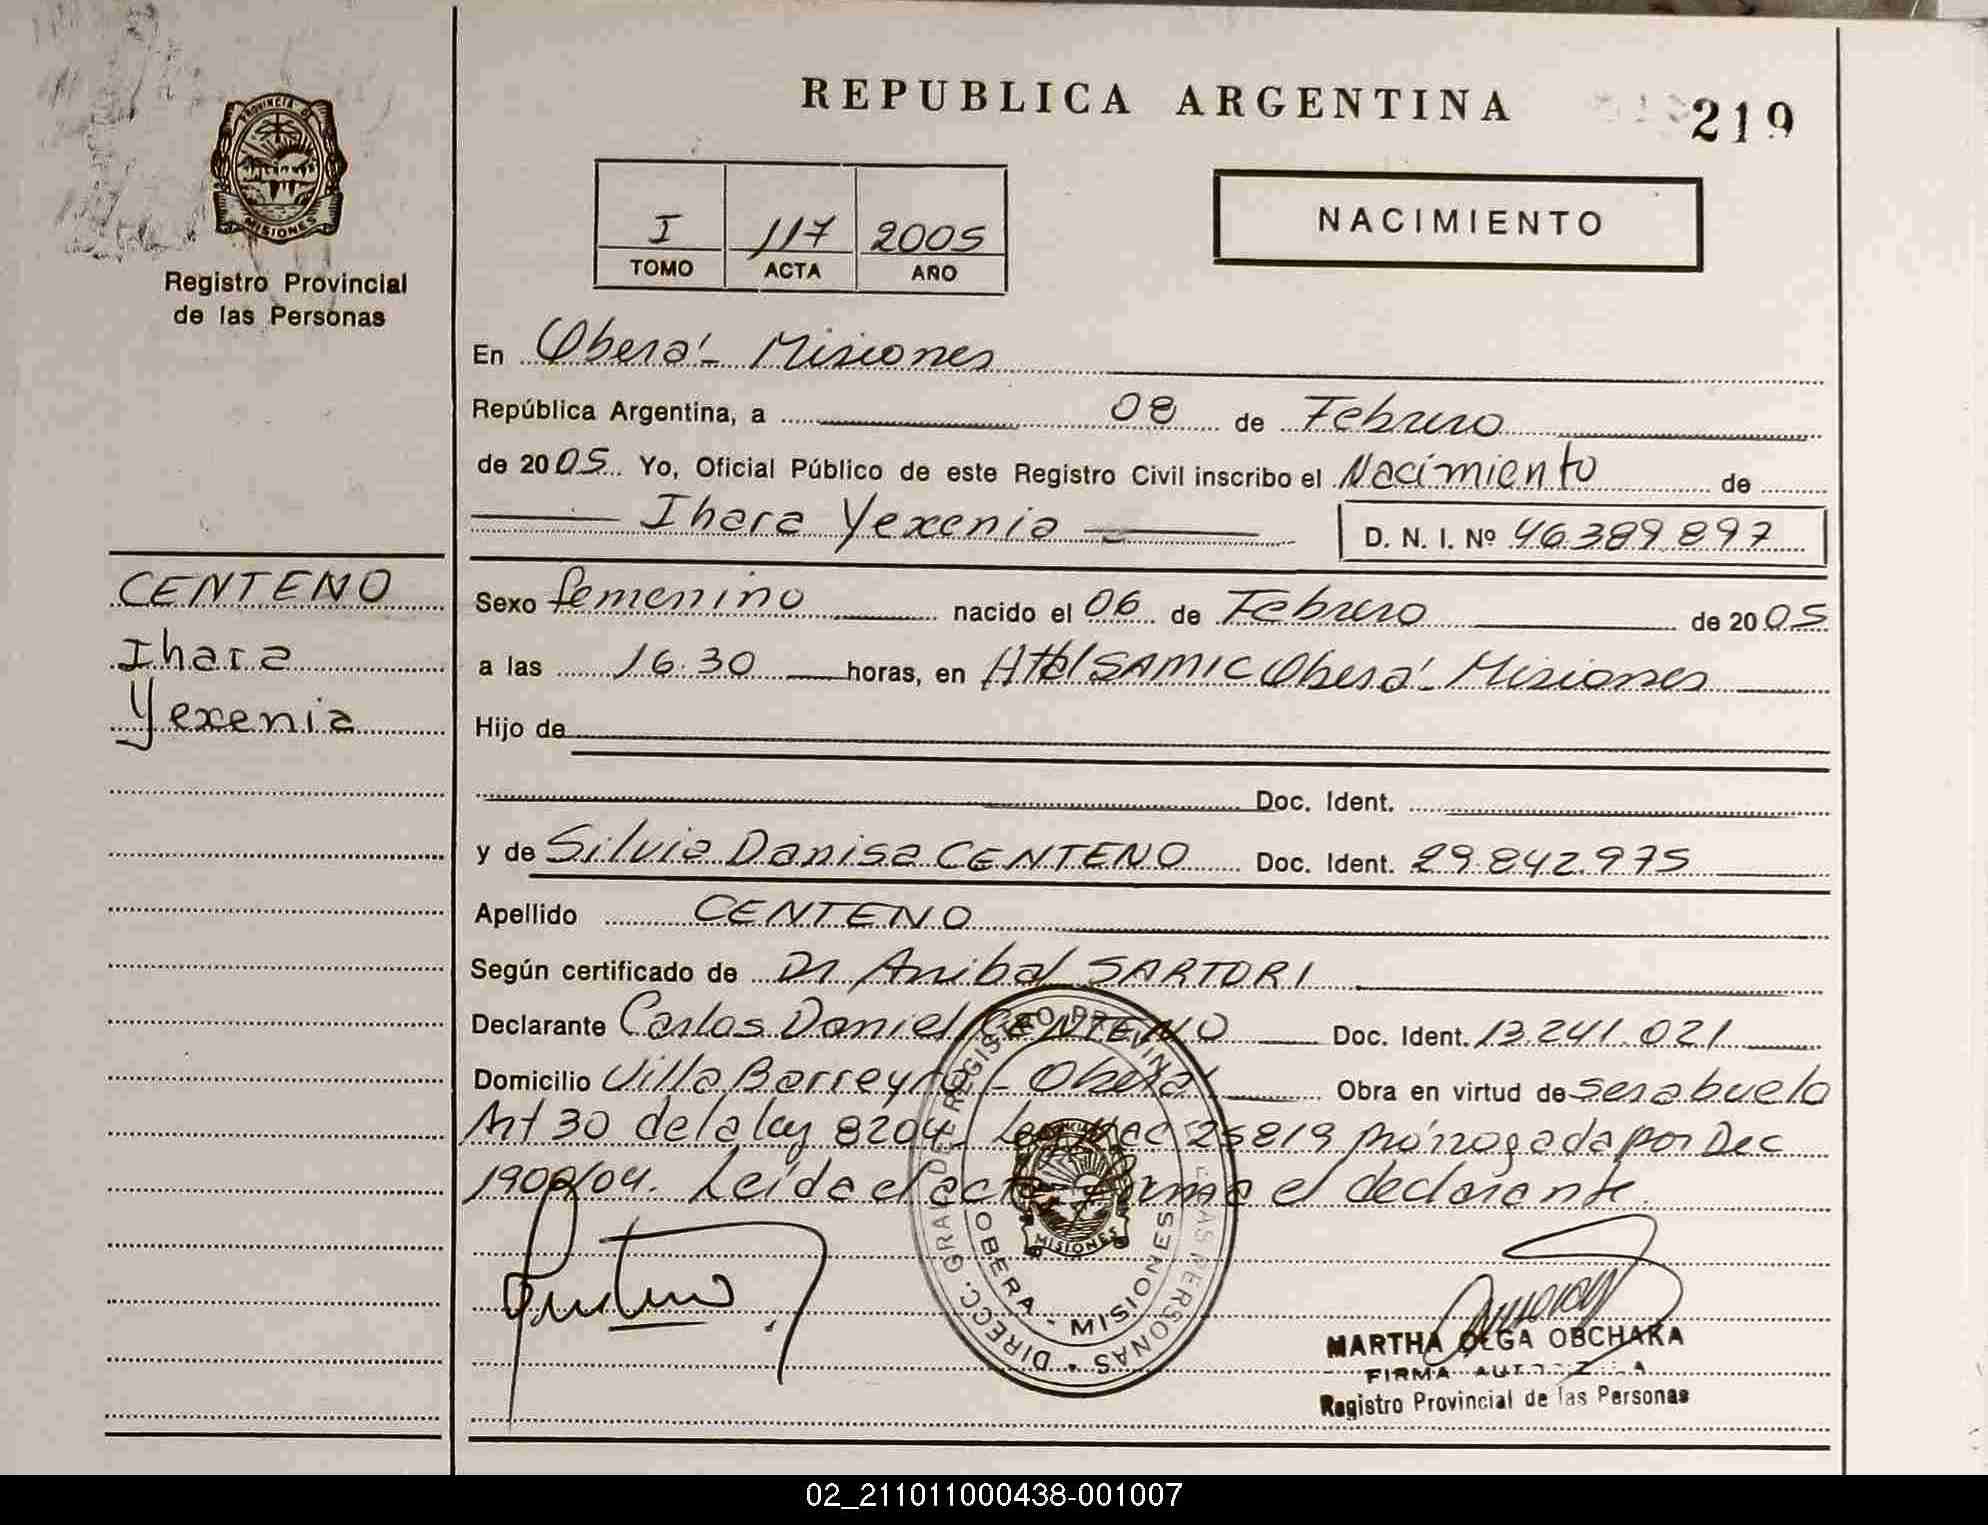 REPUBLICA ARGENTINA
219
PROVINCIA D
MISIONES
Registro Provincial
de las Personas
I 117 2005
TOMO ACTA AÑO
NACIMIENTO
En Oberá - Misiones
República Argentina, a 08 de Febrero
de 2005 Yo, Oficial Público de este Registro Civil inscribo el Nacimiento de
Ihara Yexenia D. N. I. Nº 46.389.897
CENTENO
Ihara
Yexenia
Sexo femenino nacido el 06 de Febrero de 2005
a las 16.30 horas, en SAMIC Oberá - Misiones
Hijo de
Doc. Ident.
y de Silvia Danisa CENTENO Doc. Ident. 29.842.975
Apellido CENTENO
Según certificado de Dr. Anibal SARTORI
Declarante Carlos Daniel CENTENO Doc. Ident. 13.241.021
Domicilio Villa Barreyro - Oberá Obra en virtud de ser abuelo
Art 30 de la ley 8204. Ley Nac 25819 prórrogada por Dec
1900/04. Leída el acta firma el declarante.
DIRECC. GRAL DE REGISTRO PROVINC LAS PERSONAS
MISIONES
OBERA - MISIONES
MARTHA OLGA OBCHAKA
FIRMA AUTORIZADA
Registro Provincial de las Personas
02_211011000438-001007